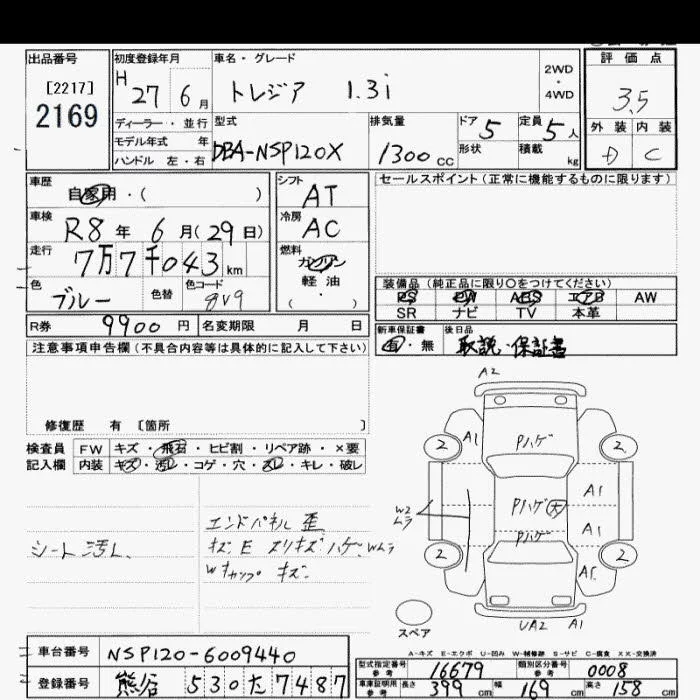 出品番号
[2217]
2169
初度登録年月
H 27 6 月
車名・グレード
トレジア 1.3i
2WD
・
4WD
評価点
3.5
外装 内装
D C
ディーラー・並行
モデル年式 年
ハンドル 左・右
型式
DBA-NSP120X
排気量
1300 CC
ドア 5
形状
定員 5 人
積載 kg
車歴
自家用・( )
車検
R8 年 6 月 (29日)
走行
7万7千043 km
色
ブルー
色替
色コード
8V9
シフト
AT
冷房
AC
燃料
ガソリン
軽油
( ・ )
セールスポイント(正常に機能するものに限ります)
装備品(純正品に限り○をつけてください)
PS PW ABS エアB AW
SR ナビ TV 本革
R券 9900 円 名変期限 月 日
新車保証書
有・無
後日品
取説・保証書
注意事項申告欄(不具合内容等は具体的に記入して下さい)
修復歴 有 [箇所 ]
検査員
記入欄
FW キズ・飛石・ヒビ割・リペア跡・×要
内装 キズ・汚レ・コゲ・穴・スレ・キレ・破レ
シート汚レ、
エンドパネル歪
キズ.E スリキズ ハゲ、Wムラ
Wカップ キズ.
A2
A1
Pハゲ
2
2
W2
ムラ
Pハゲ大
A1
Pハゲ
A1
2
2
A1
UA2 A1
スペア
A-キズ E-エクボ U-凹み W-補修跡 S-サビ C-腐食 XX-交換済
車台番号 NSP120-6009440
登録番号 熊谷 530 た 7487
型式指定番号
参考
16679
類別区分番号
参考
0008
車庫証明用
参考
長さ 399 cm 幅 169 cm 高さ 158 cm